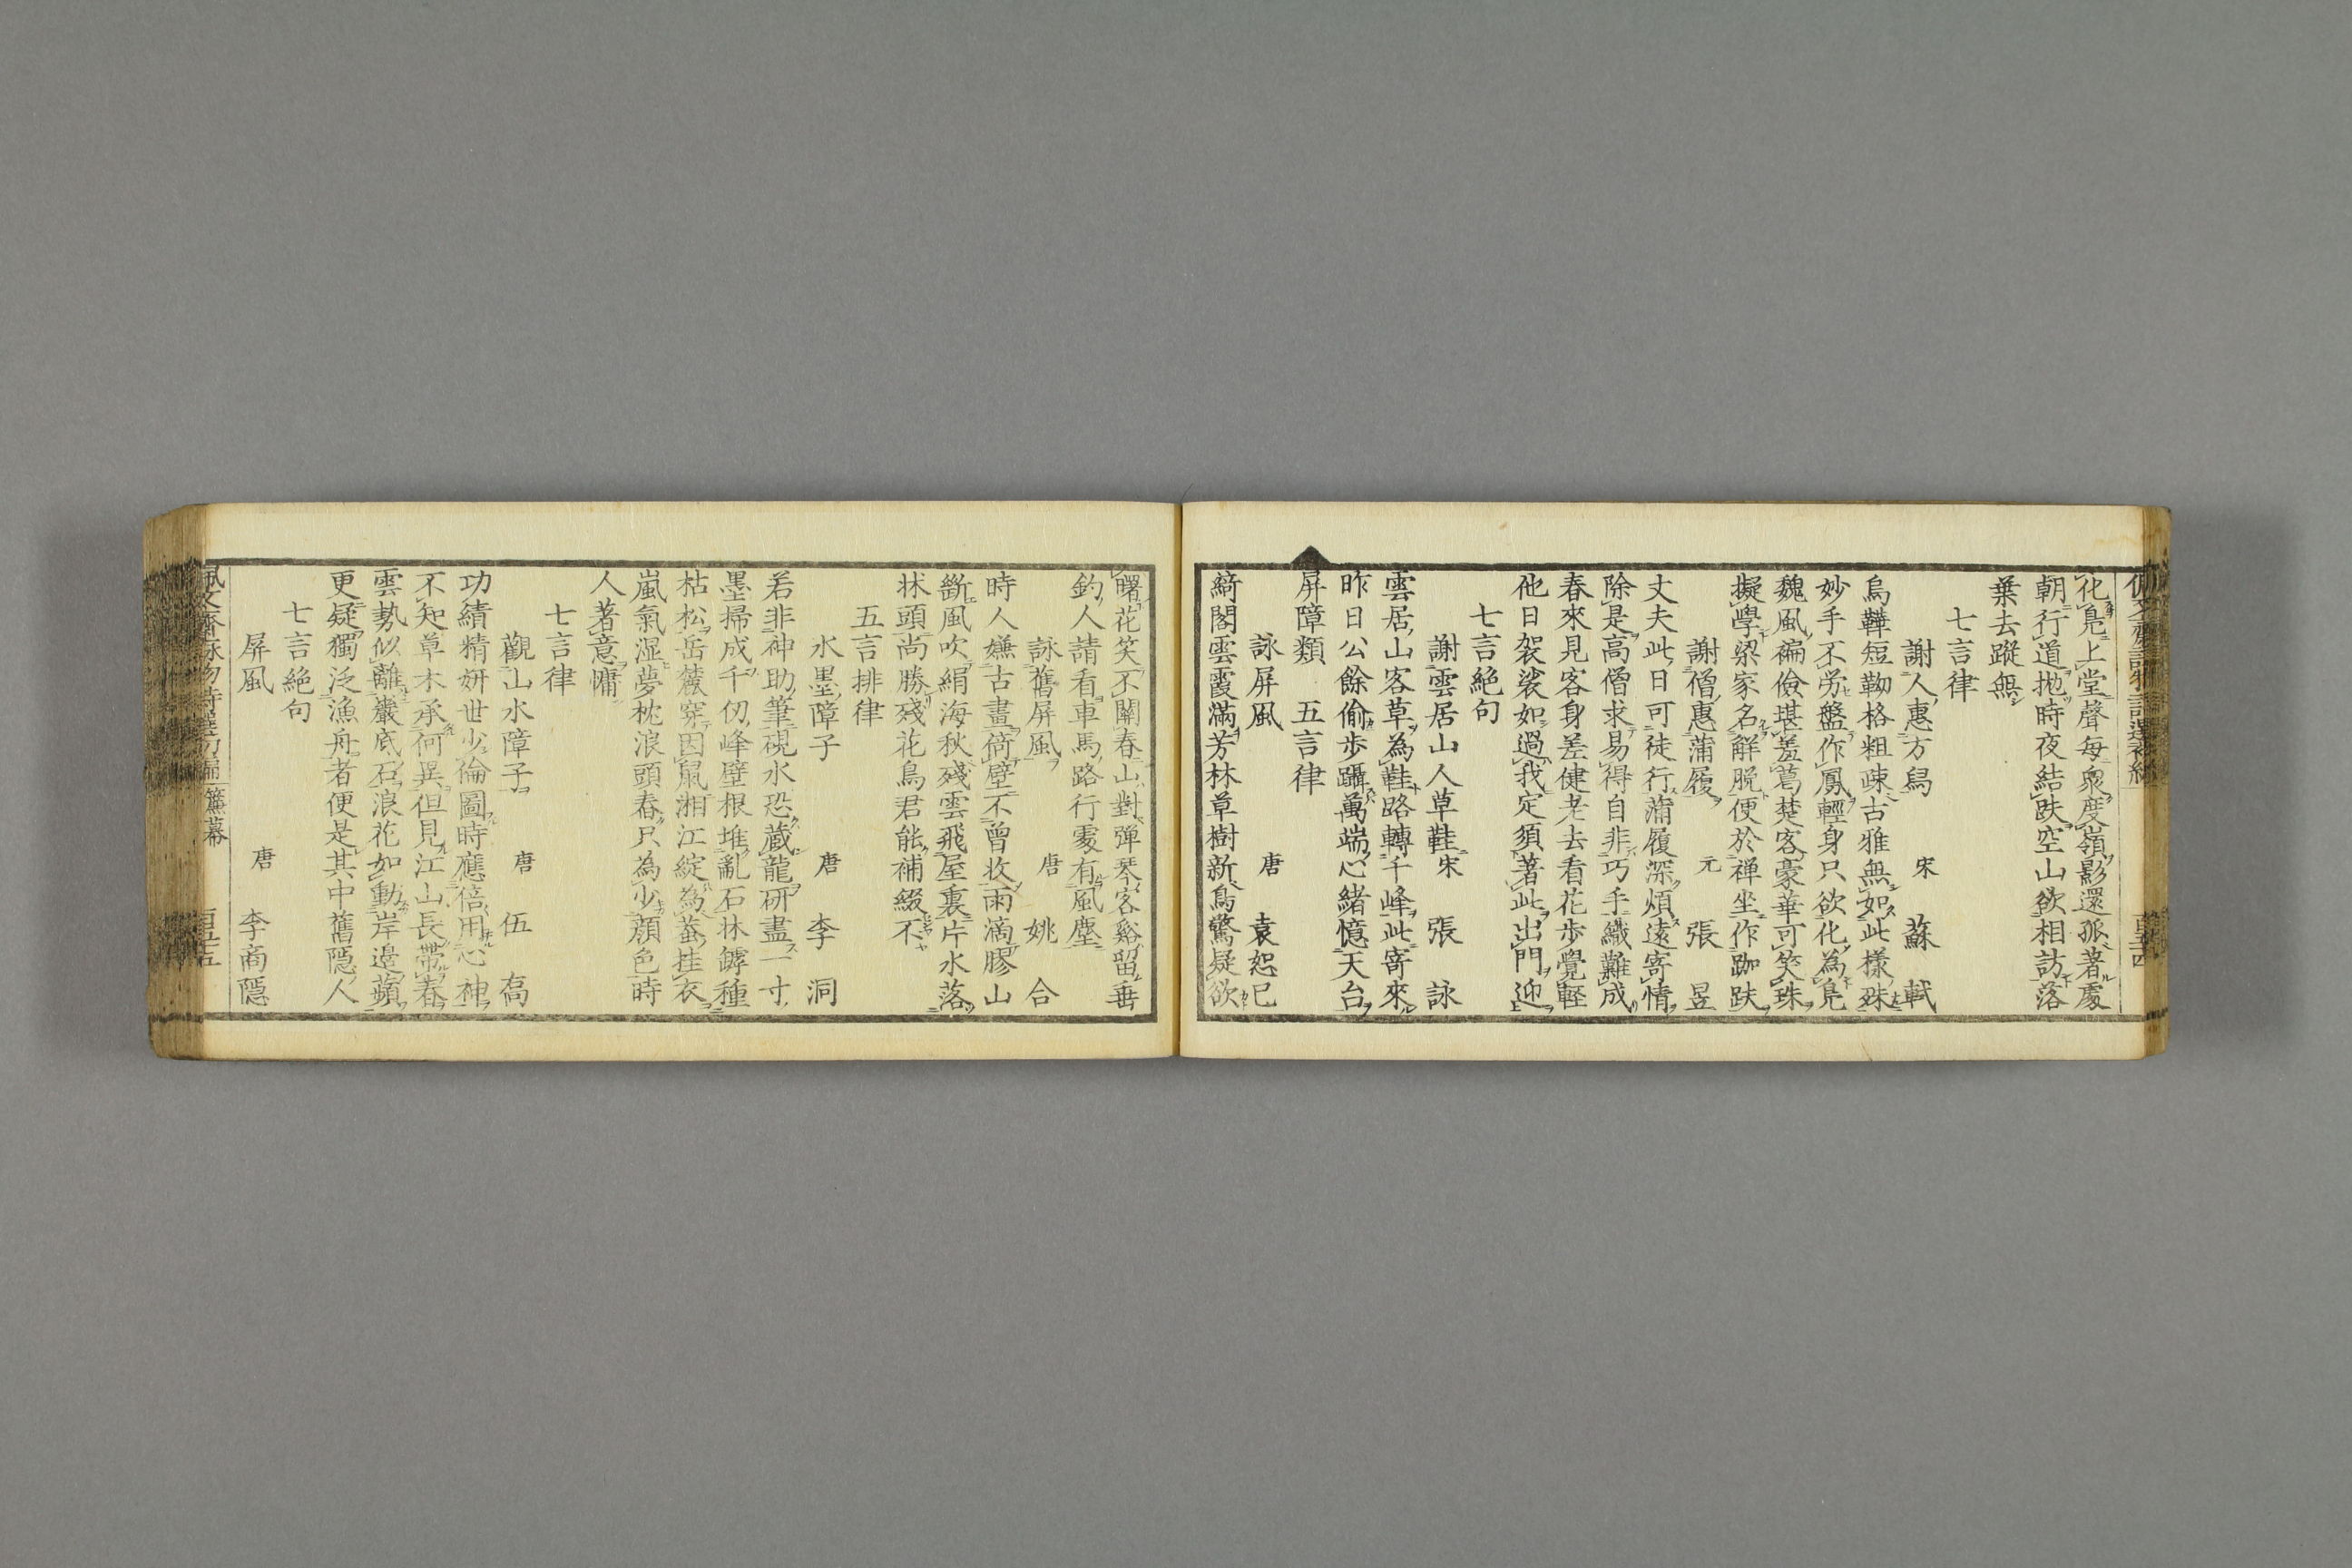 化鳧上堂聲每衆度嶺影還孤著處
朝行道拋時夜結趺空山欲相訪落
葉去蹤無
七言律
謝人惠方舄 宋 蘇軾
烏鞾短靿格粗疎古雅無如此樣殊
妙手不労盤作鳳輕身只欲化為鳧
魏風褊儉堪羞葛楚客豪華可笑珠
擬學梁家名解脱便於禅坐作跏趺
謝僧惠蒲履 元 張昱
丈夫此日可徒行蒲履深煩遠寄情
除是高僧求易得自非巧手織難成
春來見客身差健老去看花歩覺輕
他日袈裟如過我定須著此出門迎
七言絶句
謝雲居山人草鞋 宋 張詠
雲居山客草為鞋路轉千峰此寄來
昨日公餘偷歩躡萬端心緒憶天台
屏障類 五言律
詠屏風 唐 袁恕己
綺閣雲霞滿芳林草樹新鳥驚疑欲
曙花笑不關春山對弾琴客谿留垂
釣人請看車馬路行處有風塵
詠舊屏風 唐 姚合
時人嫌古畫倚壁不曾收雨滴膠山
斷風吹絹海秋殘雲飛屋裏片水落
牀頭尚勝殘花鳥君能補綴不
五言排律
水墨障子 唐 李洞
若非神助筆硯水恐蔵龍研盡一寸
墨掃成千仞峰壁根堆亂石林罅種
枯松岳麓穿因鼠湘江綻為蛬挂衣
嵐氣湿夢枕浪頭舂只為少顔色時
人著意慵
七言律
觀山水障子 唐 伍喬
功績精妍世少倫圖時應倍用心神
不知草木承何異但見江山長帶春
雲勢似離巖底石浪花如動岸邊蘋
更疑獨泛漁舟者便是其中舊隠人
七言絶句
屏風 唐 李商隠
佩文齋詠物詩選初編 簾幕 百五十五